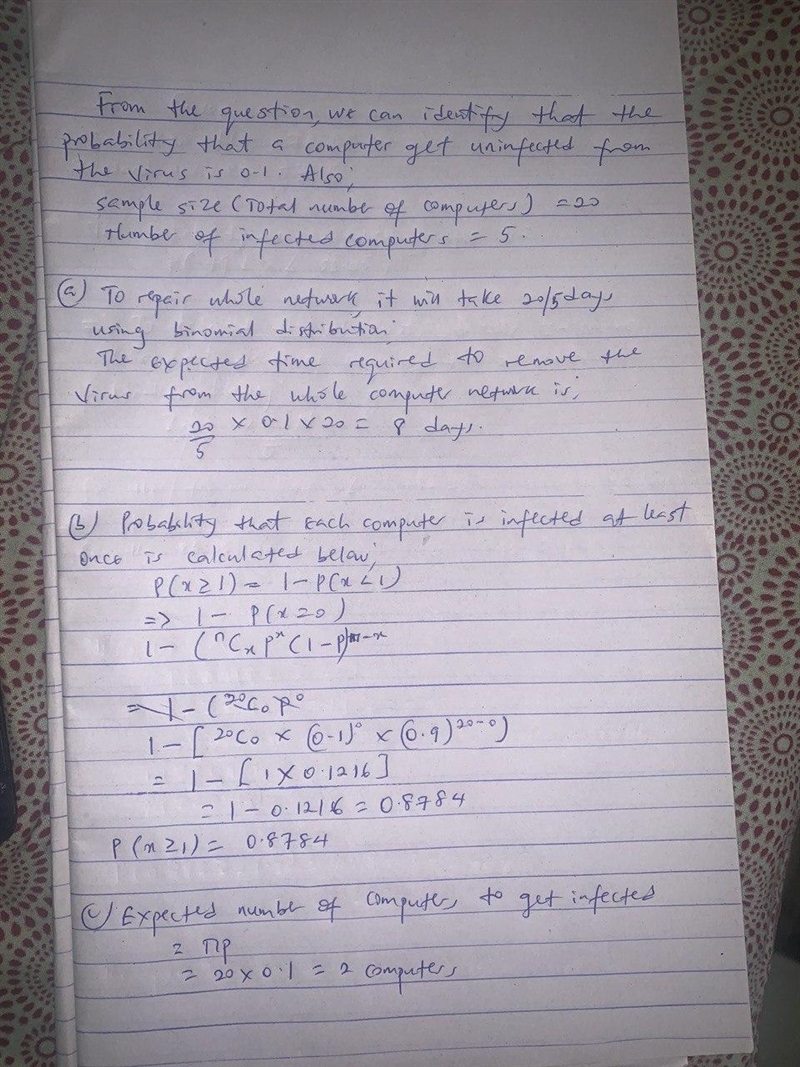 From the question, we can identify that the
probability that a computer get uninfected from
the virus is 0.1. Also;
sample size (Total number of computers) = 20
Number of infected computers = 5.
(a) To repair whole network, it will take 20/5 days
using binomial distribution;
The expected time required to remove the
virus from the whole computer network is;
20/5 × 0.1 × 20 = 8 days.
(b) Probability that each computer is infected at least
once is calculated below;
P(x ≥ 1) = 1 - P(x < 1)
=> 1 - P(x = 0)
1 - (ⁿCₓ pˣ (1-p)ⁿ⁻ˣ
= 1 - (²⁰C₀ p⁰
1 - [²⁰C₀ × (0.1)⁰ × (0.9)²⁰⁻⁰)
= 1 - [1 × 0.1216]
= 1 - 0.1216 = 0.8784
P(x ≥ 1) = 0.8784
(c) Expected number of computers to get infected
= np
= 20 × 0.1 = 2 computers